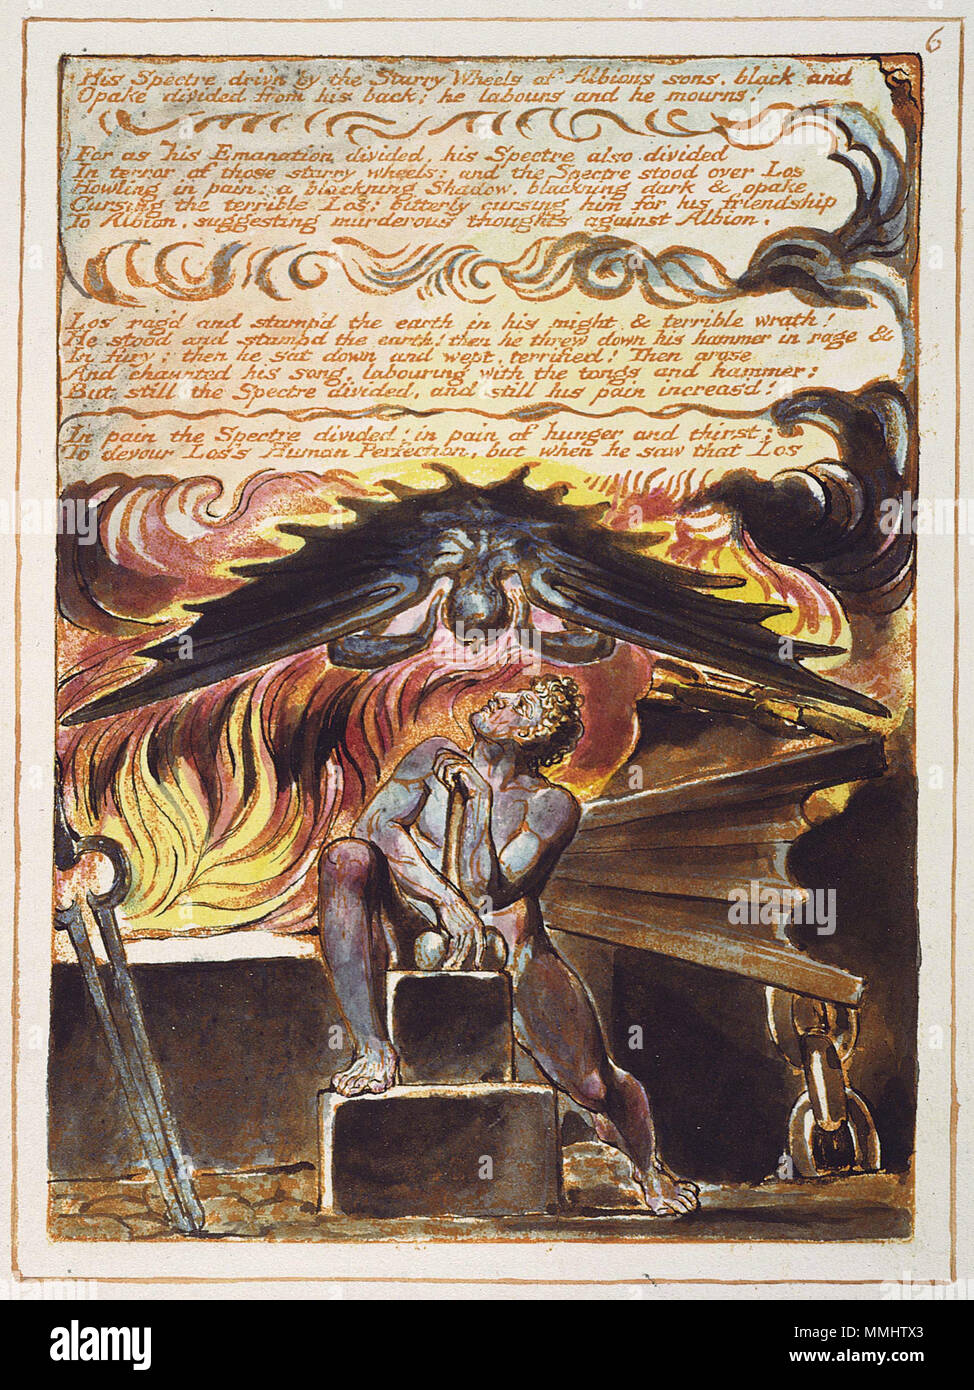 6
His Spectre driv'n by the Starry Wheels of Albions sons, black and
Opake divided from his back; he labours and he mourns!
For as his Emanation divided, his Spectre also divided
In terror of those starry wheels: and the Spectre stood over Los
Howling in pain: a blackning Shadow, blackning dark & opake
Cursing the terrible Los: bitterly cursing him for his friendship
To Albion, suggesting murderous thoughts against Albion.
Los rag'd and stamp'd the earth in his might & terrible wrath!
He stood and stampd the earth! then he threw down his hammer in rage &
In fury: then he sat down and wept, terrified! Then arose
And chaunted his song, labouring with the tongs and hammer:
But still the Spectre divided, and still his pain increas'd!
In pain the Spectre divided: in pain of hunger and thirst:
To devour Los's Human Perfection, but when he saw that Los
alamy
a
alamy stock photo
MMHTX3
www.alamy.com